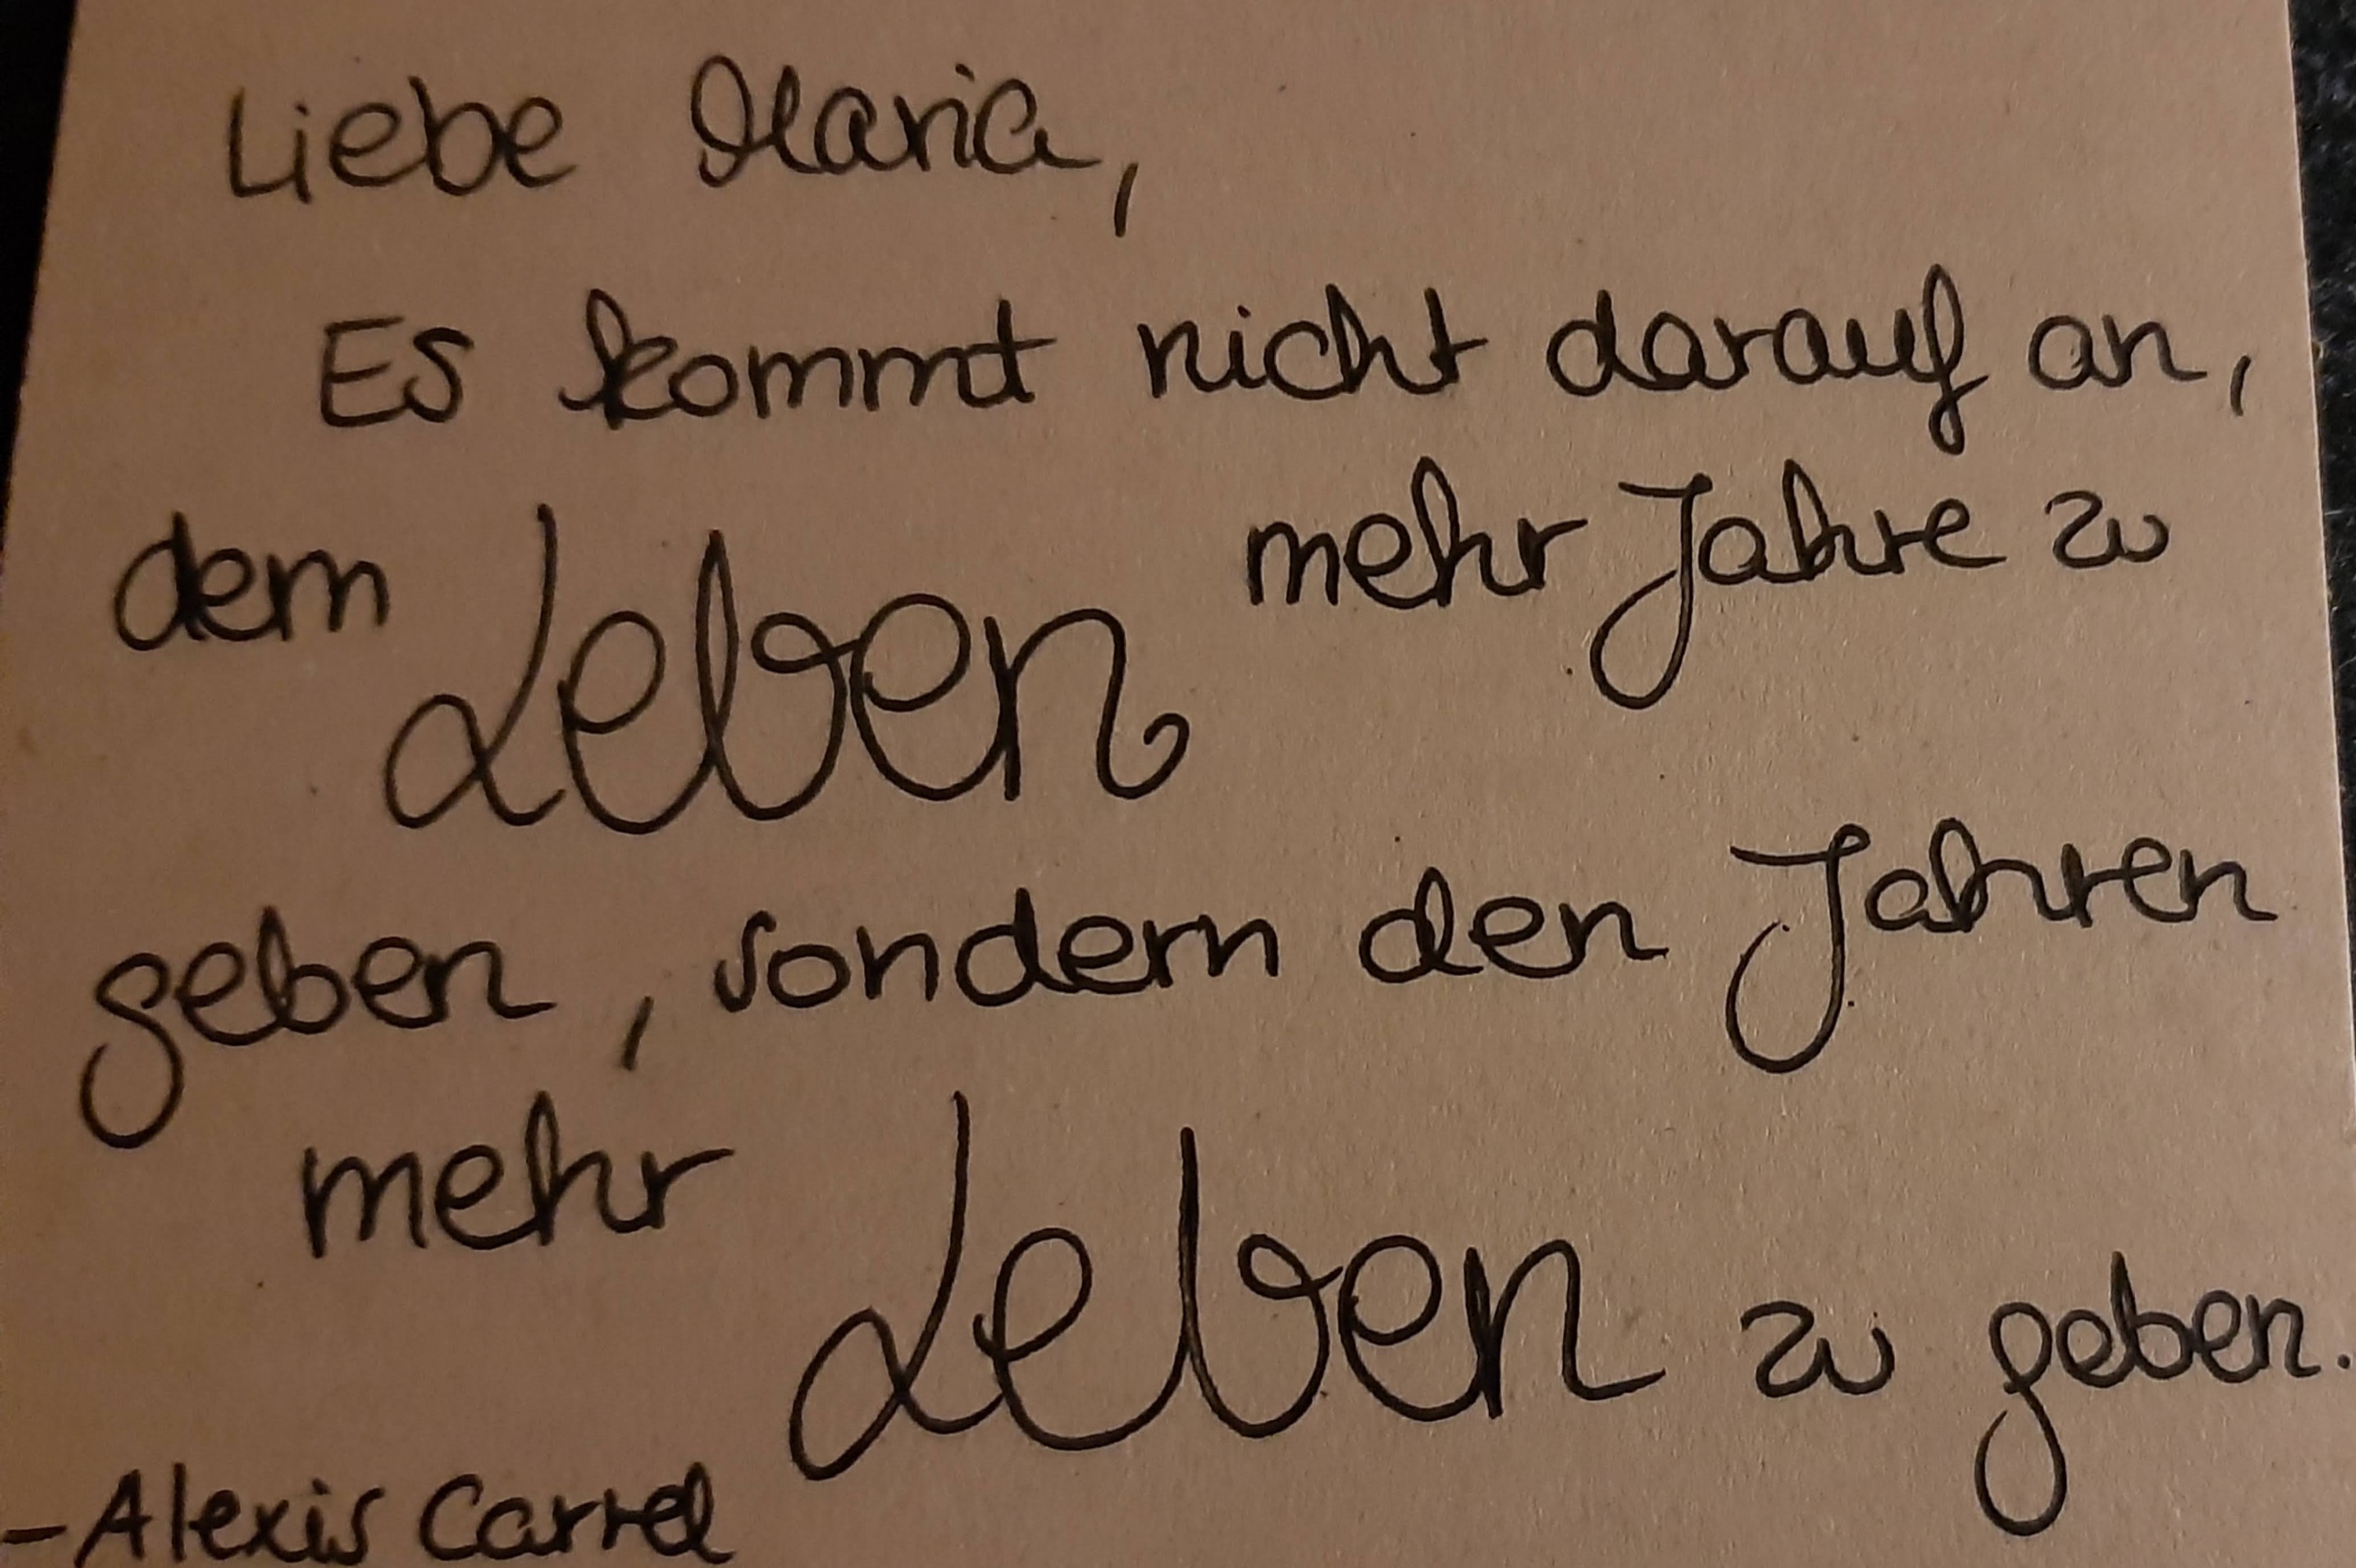 Liebe Maria,
Es kommt nicht darauf an,
dem Leben mehr Jahre zu
geben, sondern den Jahren
mehr Leben zu geben.
-Alexis Carrel